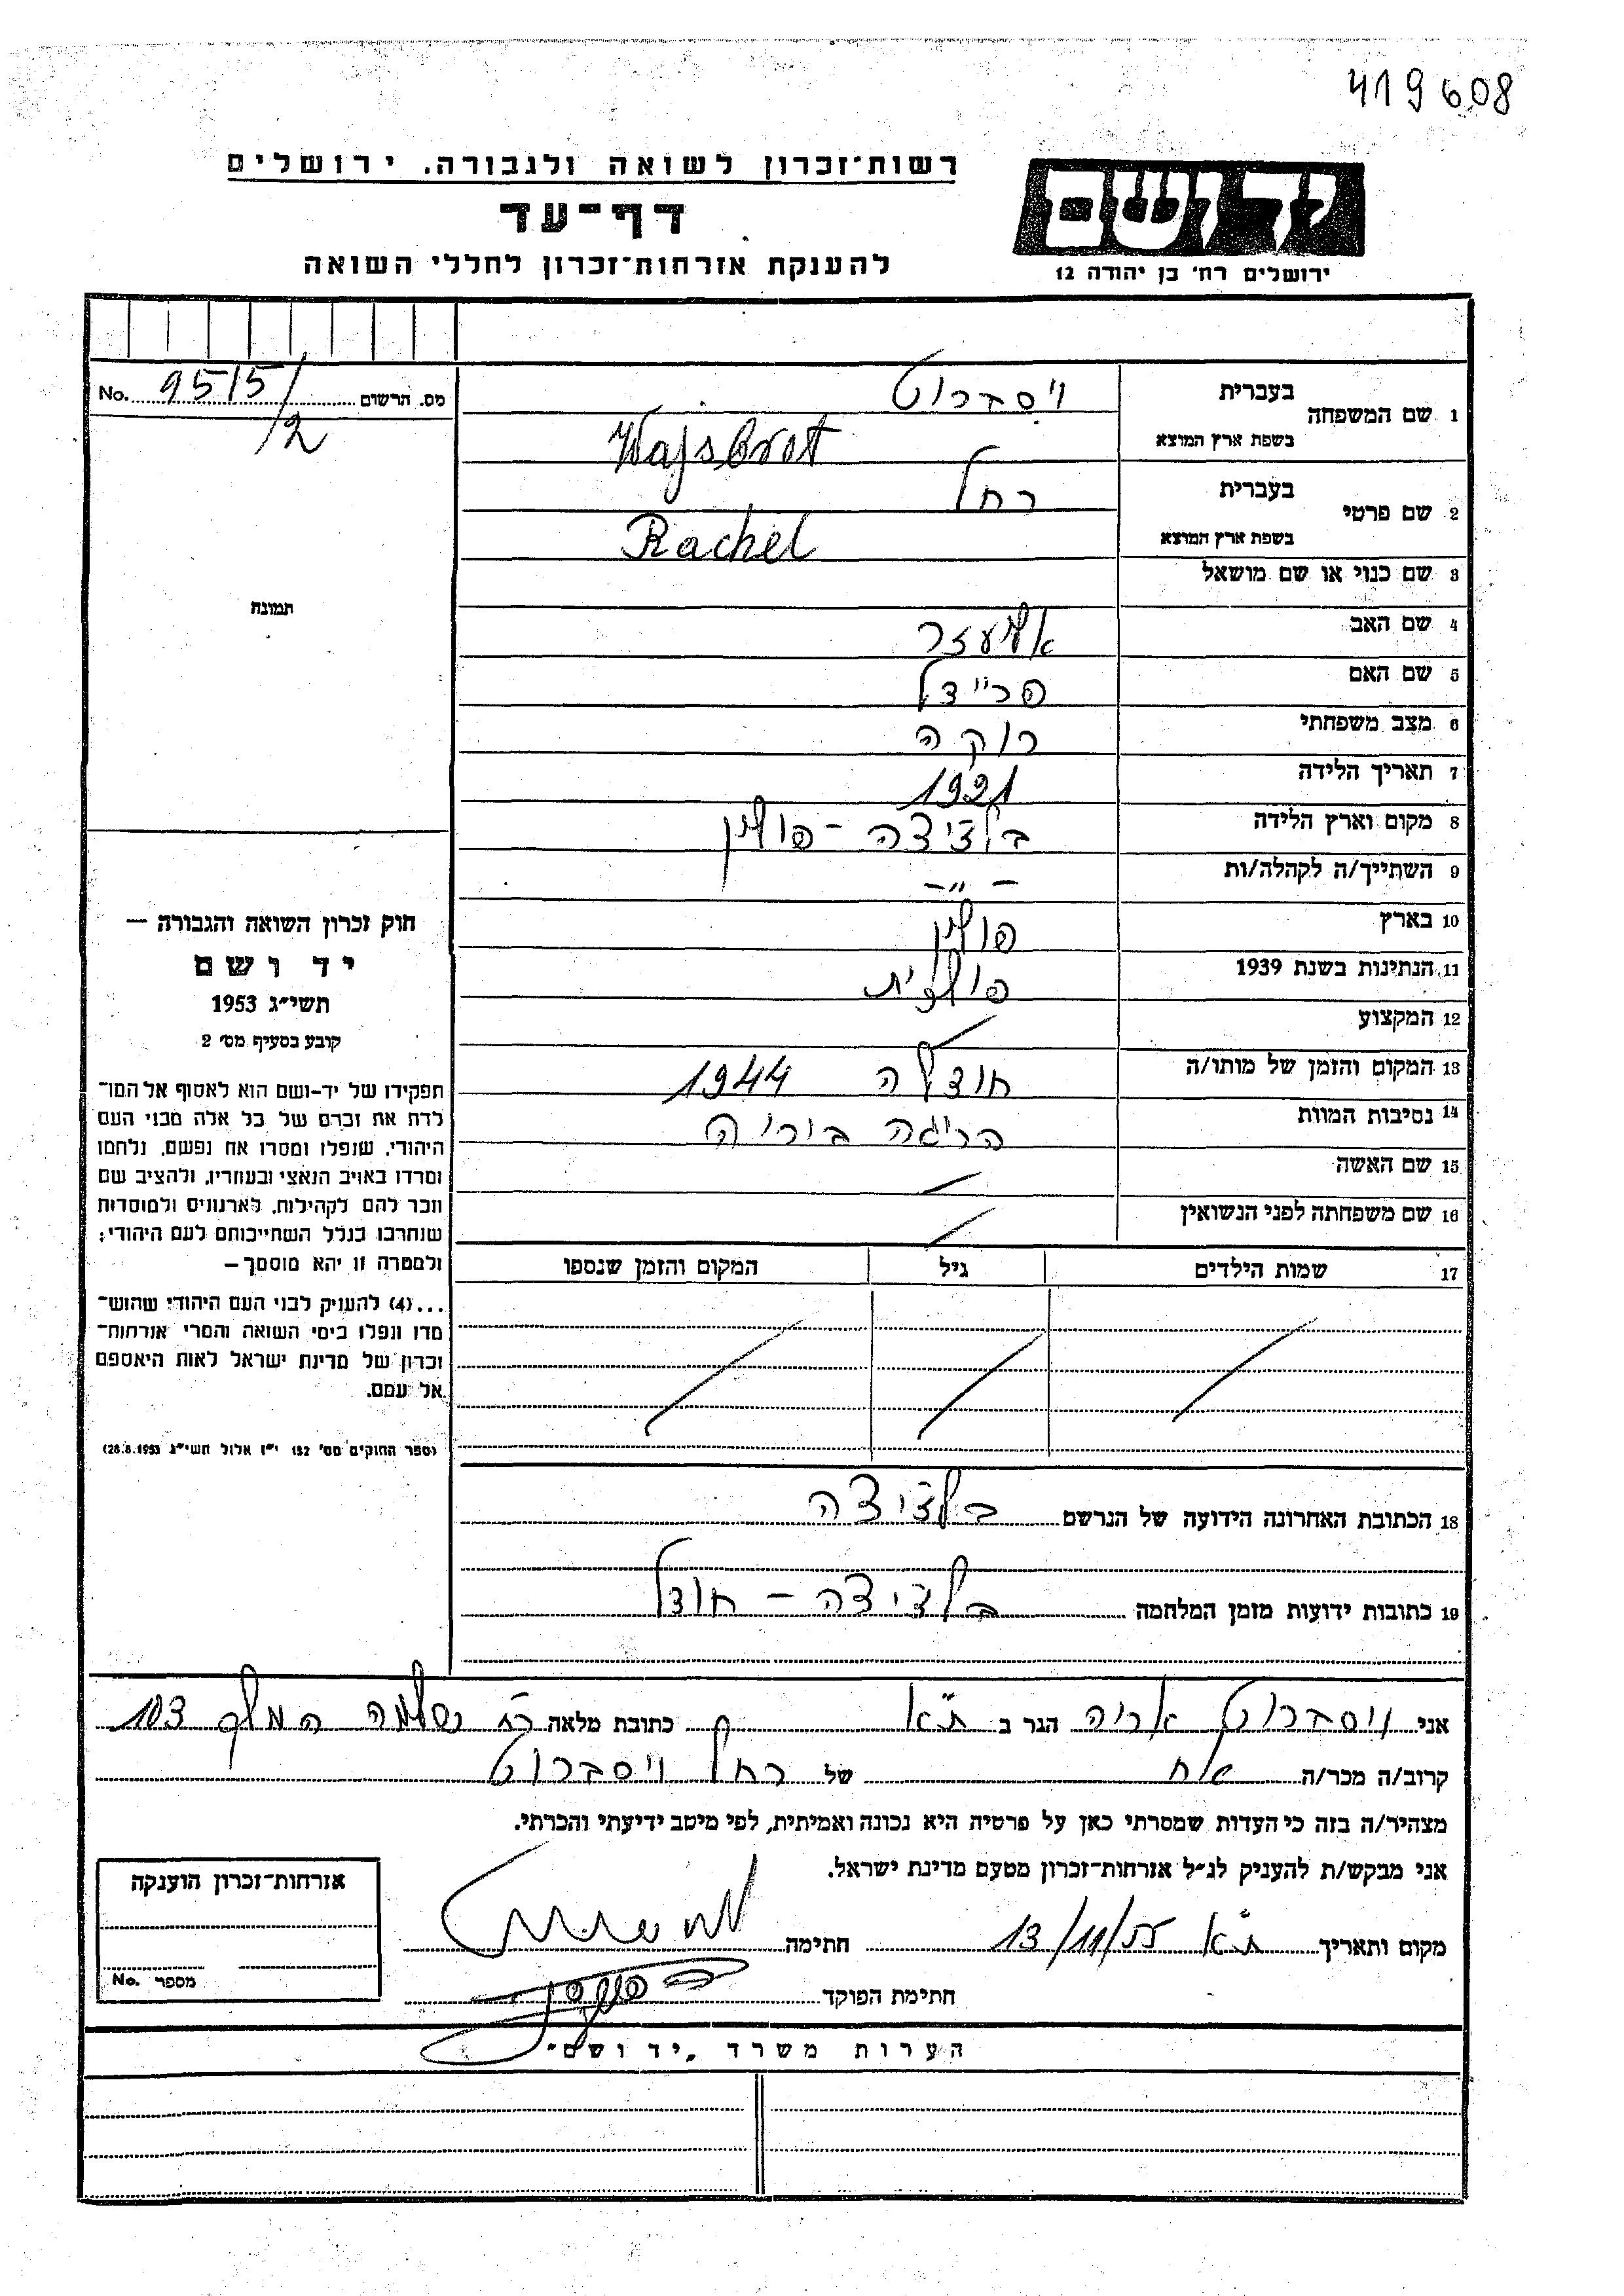 419608
יד ושם
ירושלים רח' בן יהודה 12
רשות־זכרון לשואה ולגבורה. ירושלים
דף־עד
להענקת אזרחות־זכרון לחללי השואה
מס. הרשום 9515/ No.
/2
תמונה
1 שם המשפחה בעברית ויסברוט
בשפת ארץ המוצא Wajsbrot
2 שם פרטי בעברית רחל
בשפת ארץ המוצא Rachel
3 שם כנוי או שם מושאל
4 שם האב אליעזר
5 שם האם פריידל
6 מצב משפחתי רוקה
7 תאריך הלידה 1921
8 מקום וארץ הלידה בלז'יצה – פולין
9 השתייך/ה לקהלה/ות – " –
10 בארץ פולין
11 הנתינות בשנת 1939 פולנית
12 המקצוע
13 המקום והזמן של מותו/ה 1944
14 נסיבות המוות הריגה ביריה
15 שם האשה
16 שם משפחתה לפני הנשואין
17 שמות הילדים גיל המקום והזמן שנספו
18 הכתובת האחרונה הידועה של הנרשם בלז'יצה
19 כתובות ידועות מזמן המלחמה בלז'יצה –
חוק זכרון השואה והגבורה –
יד ושם
תשי״ג 1953
קובע בסעיף מס' 2
תפקידו של יד־ושם הוא לאסוף אל המו־
לדת את זכרם של כל אלה מבני העם
היהודי, שנפלו ומסרו את נפשם, נלחמו
ומרדו באויב הנאצי ובעוזריו, ולהציב שם
וזכר להם לקהילות, לארגונים ולמוסדות
שנחרבו בגלל השתייכותם לעם היהודי;
ולמטרה זו יהא מוסמך –
...(4) להעניק לבני העם היהודי שהוש־
מדו ונפלו בימי השואה והמרי אזרחות־
זכרון של מדינת ישראל לאות היאספם
אל עמם.
(ספר החוקים מס' 132 י״ז אלול תשי״ג 28.8.1953)
אני ויסברוט אריה הגר ב ת״א כתובת מלאה רח' שלמה המלך 103
קרוב/ה מכר/ה אח של רחל ויסברוט
מצהיר/ה בזה כי העדות שמסרתי כאן על פרטיה היא נכונה ואמיתית, לפי מיטב ידיעתי והכרתי.
אני מבקש/ת להעניק לנ״ל אזרחות־זכרון מטעם מדינת ישראל.
מקום ותאריך ת״א 13/11/55 חתימה
חתימת הפוקד
אזרחות־זכרון הוענקה
מספר No.
הערות משרד „יד ושם"